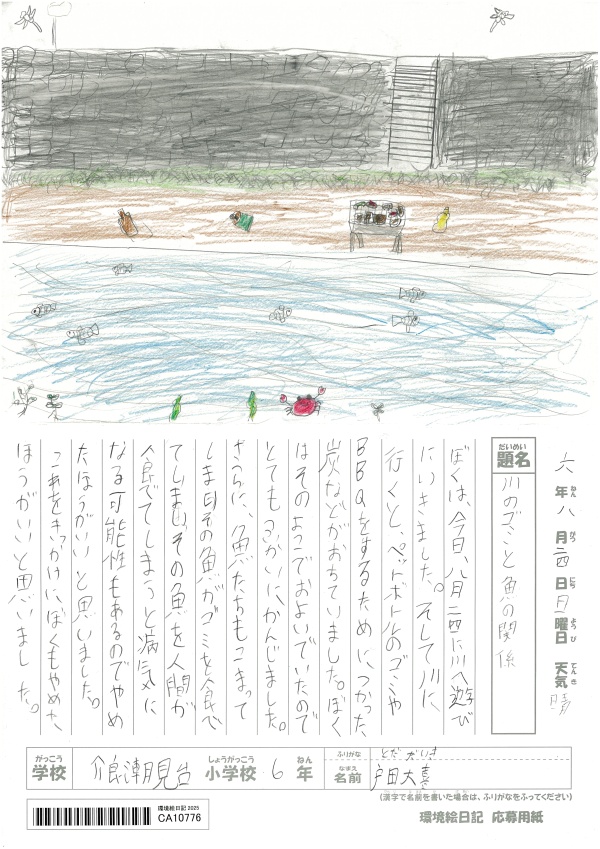 六年八月二四日月曜日 天気晴
ねん がつ にち ようび てんき
だいめい
題名
川のゴミと魚の関係
ぼくは、今日、八月二四に川へ遊び
にいきました。そして川に
行くと、ペットボトルのゴミや
BBQをするためにつかった
炭などがおちていました。ぼく
はそのよこでおよいでいたので
とてもふかいに、かんじました。
さらに、魚たちもこまって
しまうその魚がゴミを食べ
てしまいその魚を人間が
食べてしまうと病気に
なる可能性もあるのでやめ
たほうがいいと思いました。
これをきっかけにぼくもやめた
ほうがいいと思いました。
がっこう しょうがっこう ねん ふりがな とだ だいき
学校 小学校 6年 なまえ 名前 戸田大喜
(漢字で名前を書いた場合は、ふりがなをふってください)
環境絵日記 2025
CA10776
環境絵日記 応募用紙